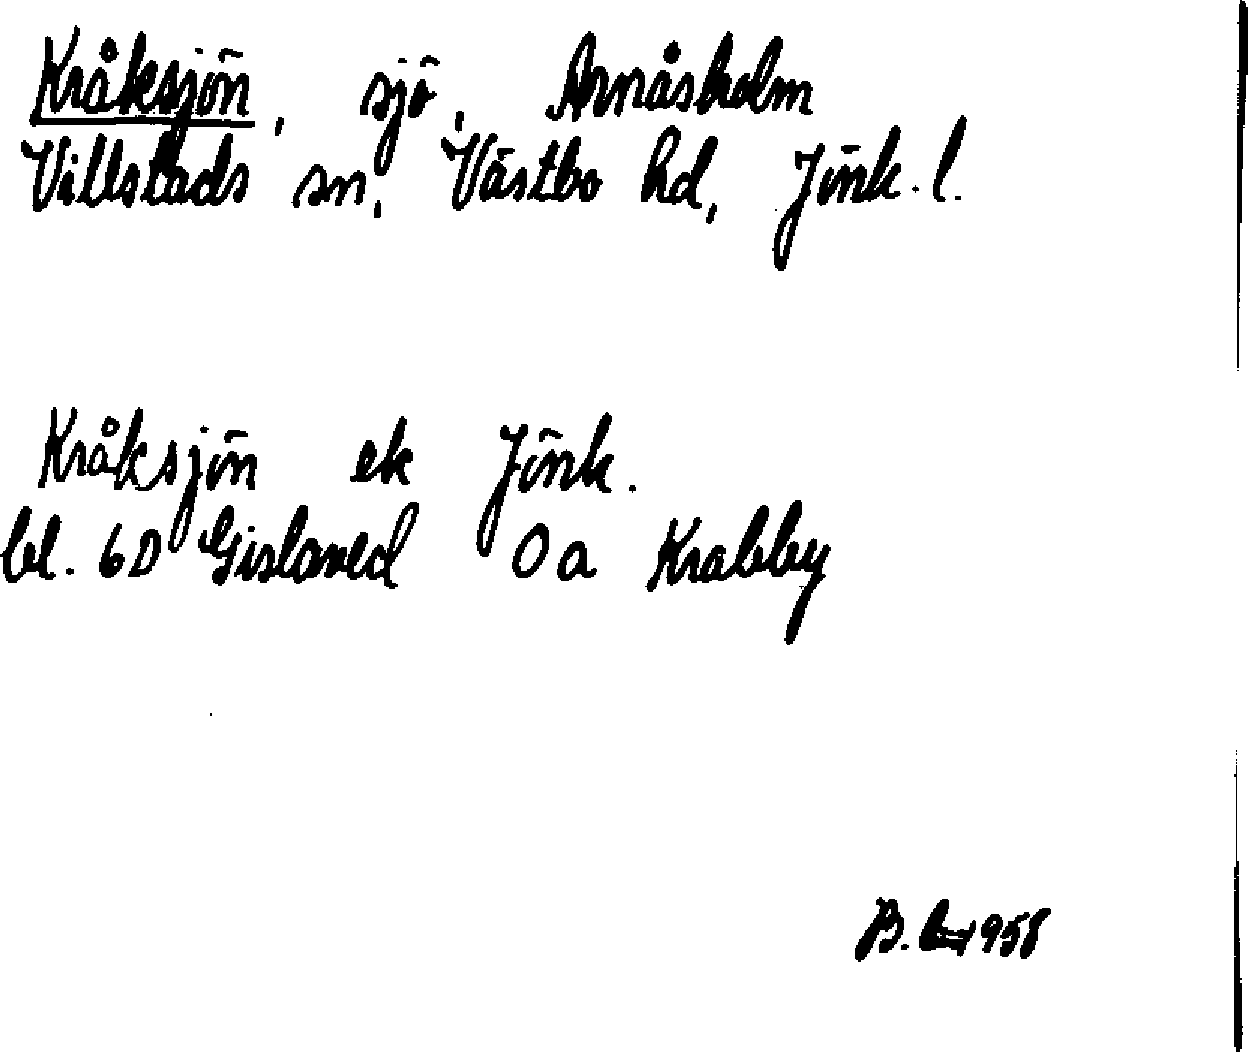 Kråksjön, sjö, Arnåsholm
Villstads sn, Västbo hd, Jönk. l.
Kråksjön ek Jönk.
bl. 6D Gislaved 0 a Krabby
B. 1958